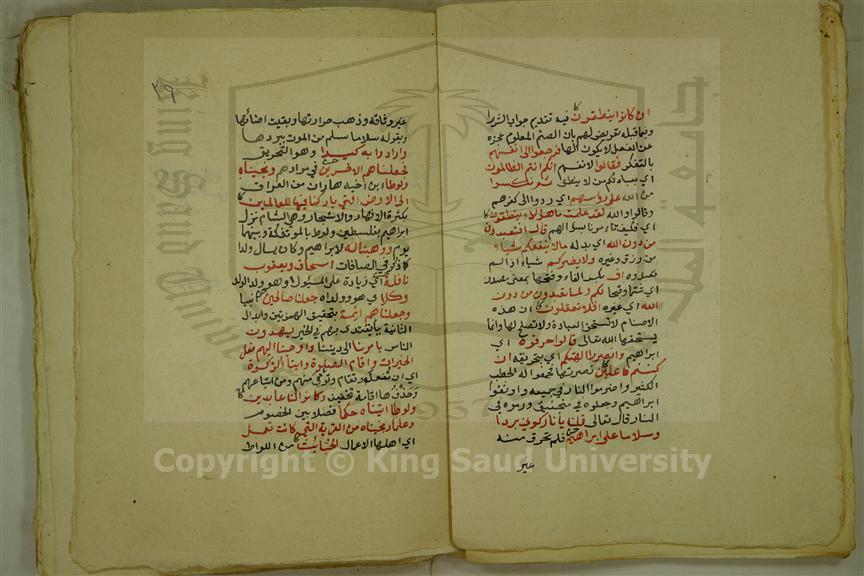 ان كانوا ينطقون فيه تقديم جواب الشرط
وفيما قبله تعريض لهم بان الصنم المعلوم عجزه
عن الفعل لا يكون الها فرجعوا الى انفسهم
بالتفكر فقالوا لانفسهم انكم انتم الظالمون
اي بعبادتكم من لا ينطق ثم نكسوا
من الله على رؤسهم اي ردوا الى كفرهم
وقالوا والله لقد علمت ما هؤلاء ينطقون
اي فكيف تامرنا بسؤالهم قال افتعبدون
من دون الله اي بدله ما لا ينفعكم شيئا
من رزق وغيره ولا يضركم شيئا اذا لم
تعبدوه اف بكسر الفاء وفتحها بمعنى مصدر
اي نتنا وقبحا لكم ولما تعبدون من دون
الله اي غيره افلا تعقلون ان هذه
الاصنام لا تستحق العبادة ولا تصلح لها وانما
يستحقها الله تعالى قالوا حرقوه اي
ابراهيم وانصروا الهتكم اي بتحريقه ان
كنتم فاعلين نصرتها فجمعوا له الحطب
الكثير واضرموا النار في جميعه واوثقوا
ابراهيم وجعلوه في منجنيق ورموه في
النار قال تعالى قلنا يا نار كوني بردا
وسلاما على ابراهيم فلم تحرق منه
غير
٣٩
غير وثاقه وذهب حرارتها وبقيت اضائتها
وبقوله سلاما سلم من الموت ببردها
وارادوا به كيدا وهو التحريق
فجعلناهم الاخسرين في مرادهم ونجيناه
ولوطا بن اخيه هاران من العراق
الى الارض التي باركنا فيها للعالمين
بكثرة الانهار والاشجار وهي الشام نزل
ابراهيم بفلسطين ولوط بالموتفكة وبينهما
يوم ووهبنا له لابراهيم وكان سال ولدا
كما ذكر في الصافات اسحاق ويعقوب
نافلة اي زيادة على المسئول او هو ولد الولد
وكلا اي هو وولداه جعلنا صالحين انبيا
وجعلناهم ائمة بتحقيق الهمزتين وابدال
الثانية يا يقتدى بهم في الخير يهدون
الناس بامرنا الى ديننا واوحينا اليهم فعل
الخيرات واقام الصلوة وايتا الزكوة
اي ان تفعل وتقام وتوتى منهم ومن اتباعهم
وحذف ها اقامة تخفيف وكانوا لنا عابدين
ولوطا اتيناه حكما فصلا بين الخصوم
وعلما ونجيناه من القرية التي كانت تعمل
اي اهلها الاعمال الخبائث من اللواط
Copyright © King Saud University
جامعة الملك
King Saud University
1957